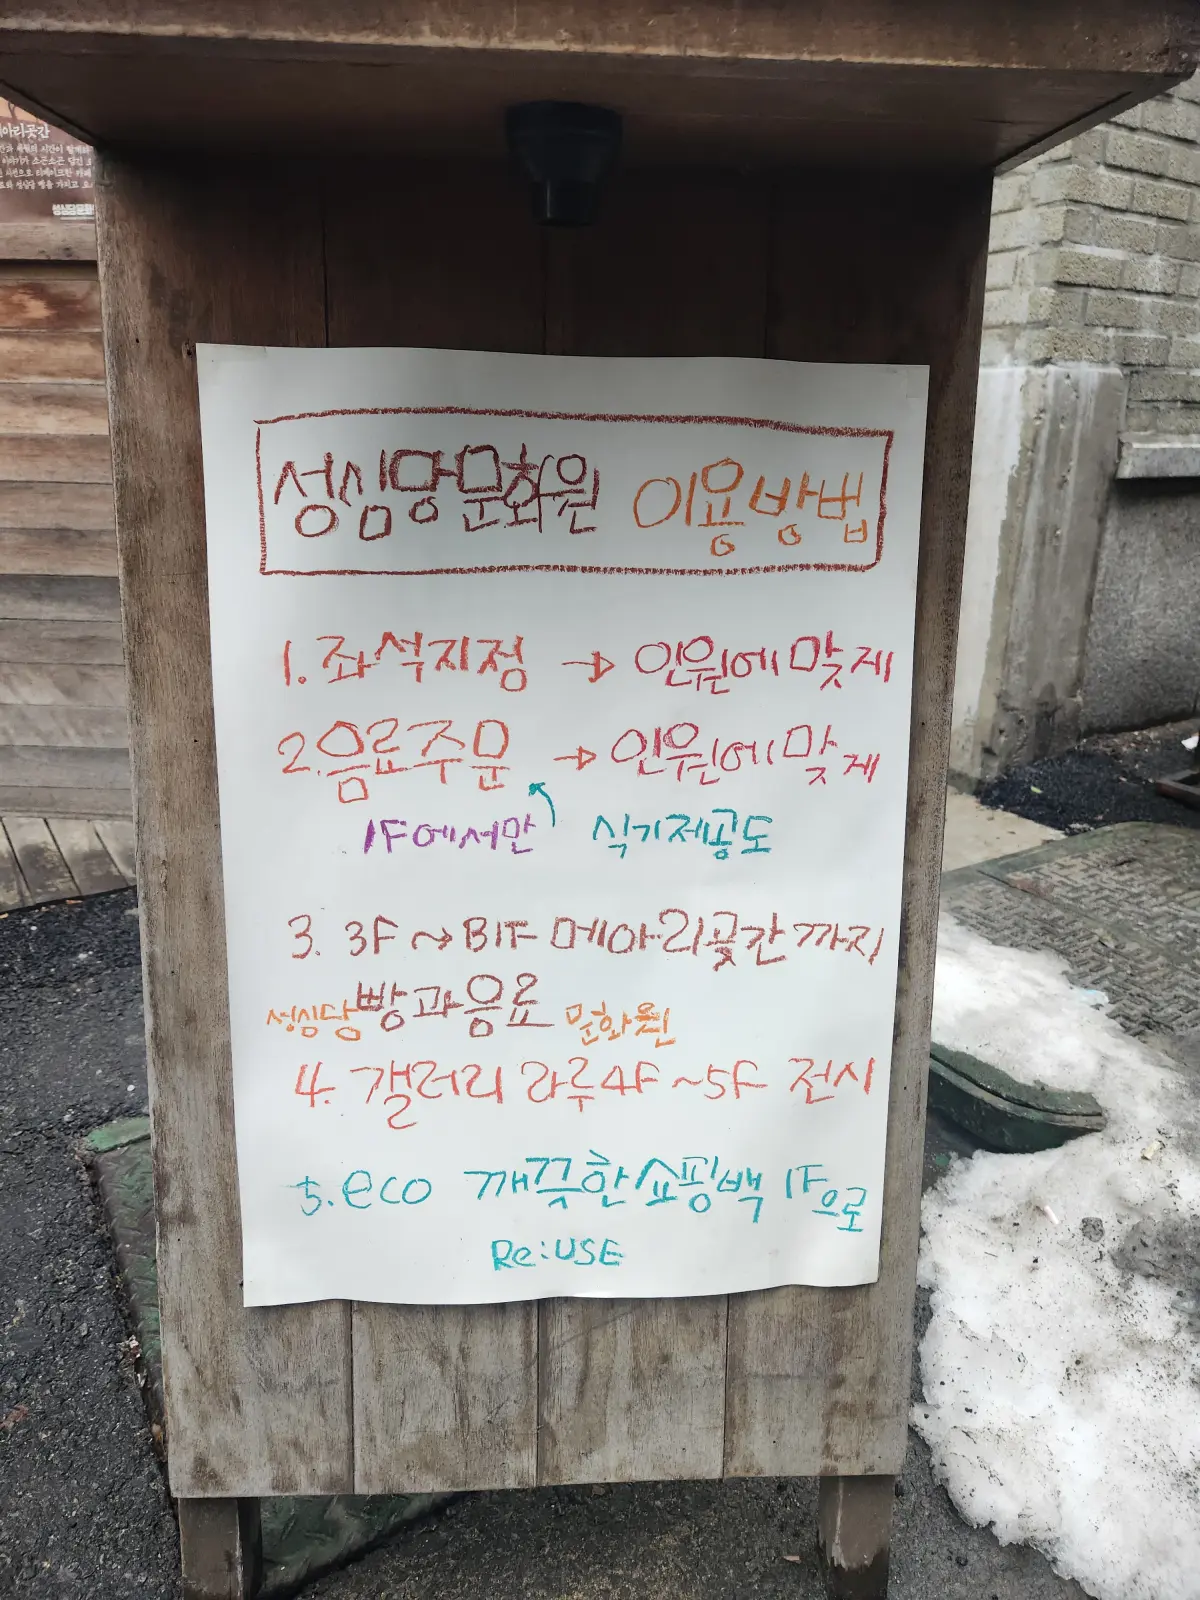 아리곳간
성심당문화원 이용방법
1. 좌석지정 → 인원에 맞게
2. 음료주문 → 인원에 맞게
1F에서만 식기제공도
3. 3F ~→ B1F 메아리곳간까지
성심당 빵과 음료 문화원
4. 갤러리 라루 4F ~5F 전시
5. eco 깨끗한 쇼핑백 1F으로
Re:USE